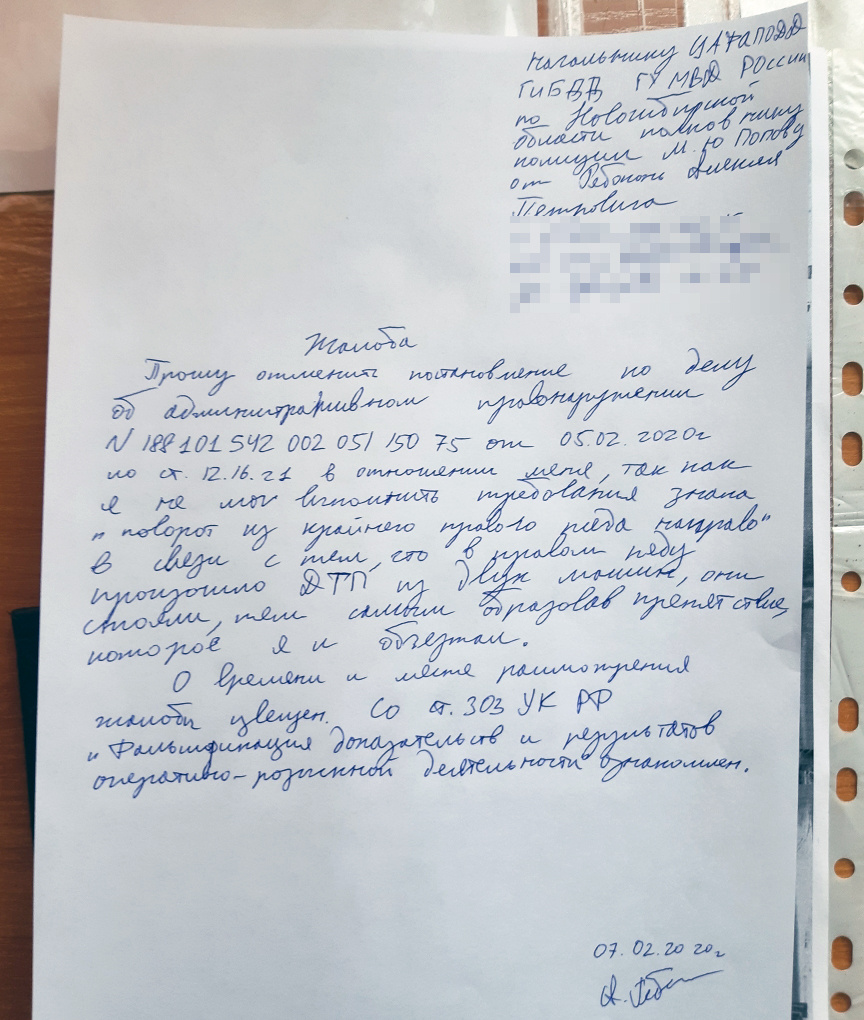 Начальнику ЦАФАПОДД
ГИБДД ГУ МВД РОССИИ
по Новосибирской
области полковнику
полиции М.Ю Попову
от Алексея
Петровича
Жалоба
Прошу отменить постановление по делу
об административном правонарушении
N 188 101 542 002 051 150 75 от 05.02.2020г
по ст. 12.16.ч1 в отношении меня, так как
я не мог выполнить требования знака
"поворот из крайнего правого ряда направо"
в связи с тем, что в правом ряду
произошло ДТП из двух машин, они
стояли, тем самым образовав препятствие,
которое я и объезжал.
О времени и месте рассмотрения
жалобы извещен. Со ст. 303 УК РФ
"Фальсификация доказательств и результатов
оперативно-розыскной деятельности" ознакомлен.
07.02.2020г